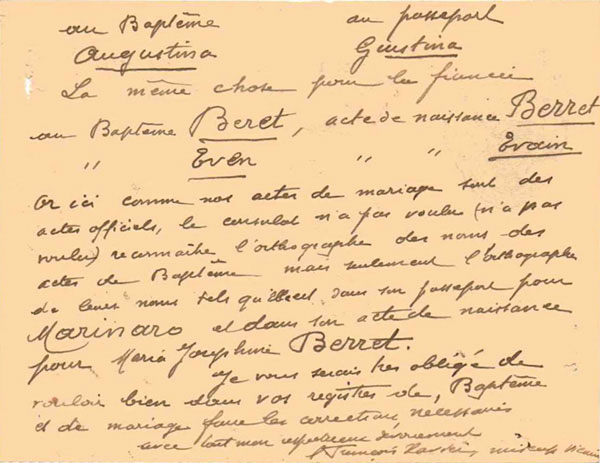 au Baptême au passeport
Augustina Giustina
La même chose pour la fiancée
au Baptême Beret, acte de naissance Berret
" Even " " Evain
Or ici comme nos actes de mariage sont des
actes officiels, le consulat n'a pas voulu (n'a pas
voulu) reconnaître l'orthographe des noms des
actes de Baptême mais seulement l'orthographe
de leurs noms tels qu'elle est dans son passeport pour
Marinaro et dans son acte de naissance
pour Maria Josephine Berret.
Je vous serais très obligé de
vouloir bien dans vos registres de, Baptême
et de mariage faire les corrections nécessaires
avec tout mon respectueux dévouement
François